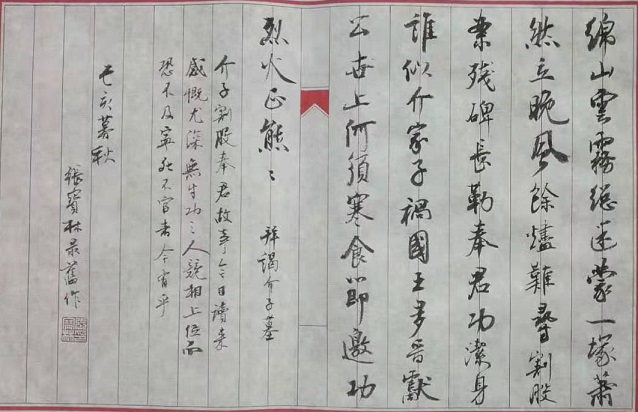 綿山雲霧總迷蒙一塚蕭
然立晚风餘燼難尋割股
案残碑長勒奉君功潔身
誰似介家子禍國王多晉獻
公世上何須寒食節邀功
烈火正熊〻 拜謁介子墓
介子割股奉君故事今日讀来
感慨尤深無寸功之人競相上位而
恐不及寧死不官者今有乎
己亥暮秋
張寶林录舊作